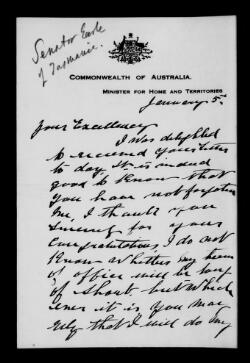 Senator Earle
of Tasmania.
COMMONWEALTH OF AUSTRALIA.
MINISTER FOR HOME AND TERRITORIES
January 5.
Your Excellency
I was delighted
to receive your letter
to day. It is indeed
good to know that
you have not forgotten
me, I thank you
sincerely for your
Congratulations, I do not
know whether my term
of office will be long
or short, but which
ever it is you may
rely that I will do my